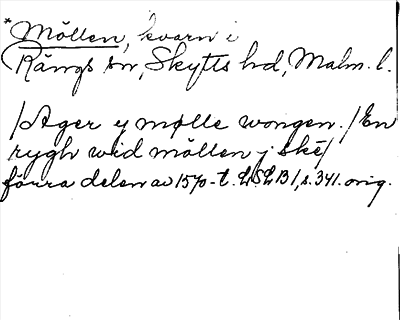 *Möllen, kvarn i
Rängs sn, Skytts hd, Malm. l.
/Ager y mølle wongen. / En
rygh wid möllen j Skē/
förra delen av 1570-t. LSLB1, s. 341. orig.